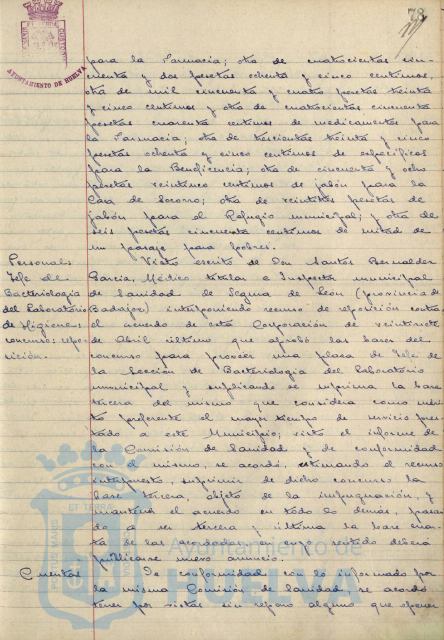 78
AYUNTAMIENTO DE HUELVA
para la Farmacia; otra de cuatrocientas cin-
cuenta y dos pesetas ochenta y cinco centimos,
otra de mil cincuenta y cuatro pesetas treinta
y cinco centimos y otra de cuatrocientas cincuenta
pesetas cuarenta centimos de medicamentos para
la Farmacia; otra de trescientas treinta y cinco
pesetas ochenta y cinco centimos de especificos
para la Beneficencia; otra de cincuenta y ocho
pesetas veinticinco centimos de jabón para la
Casa de Socorro; otra de veintitres pesetas de
jabón para el Refugio municipal; y otra de
seis pesetas cincuenta centimos de mitad de
un pasaje para pobres.
Personal: Visto escrito de Don Santos Bernalder
Jefe de Garcia, Médico titular e Inspector municipal
Bacteriología de Sanidad de Segura de León (provincia de
del Laboratorio Badajoz) interponiendo recurso de reposición contra
de Higiene: el acuerdo de esta Corporación de veintisiete
concurso: repo- de Abril último que aprobó las bases del
sición. concurso para proveer una plaza de Jefe de
la Sección de Bacteriología del Laboratorio
municipal y suplicando se suprima la base
tercera del mismo que considera como méri-
to preferente el mayor tiempo de servicio pres-
tado a este Municipio; visto el informe de
la Comisión de Sanidad y de conformidad
con el mismo, se acordó, estimando el recurso
interpuesto, suprimir de dicho concurso la
base tercera, objeto de la impugnación, y
mantener el acuerdo en todo lo demás, pasan-
do a ser tercera y última la base cuar-
ta de las acordadas, en cuyo sentido deberá
publicarse nuevo anuncio.
Cuentas De conformidad con lo informado por
la misma Comisión de Sanidad, se acordó
tener por vistas sin reparo alguno que oponer
Ayuntamiento de
HUELVA